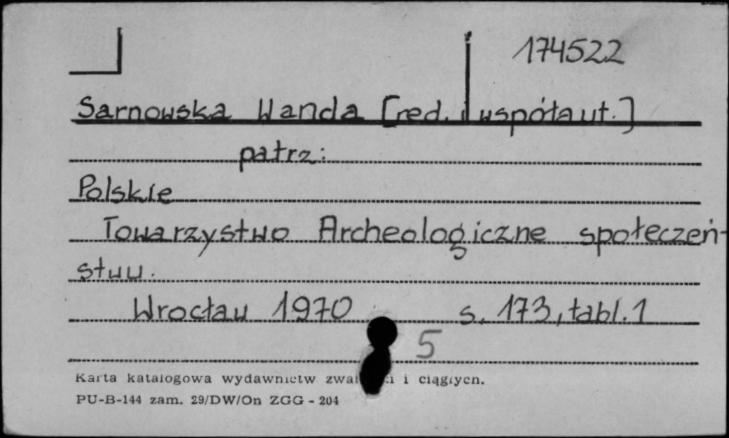 174522
Sarnowska Wanda [red. i współaut.]
patrz:
Polskie
Towarzystwo Archeologiczne społeczeń-
stwu.
Wrocław 1970 s. 173, tabl. 1
5
Karta katalogowa wydawnictw i ciągłych.
PU-B-144 zam. 29/DW/On ZGG - 204